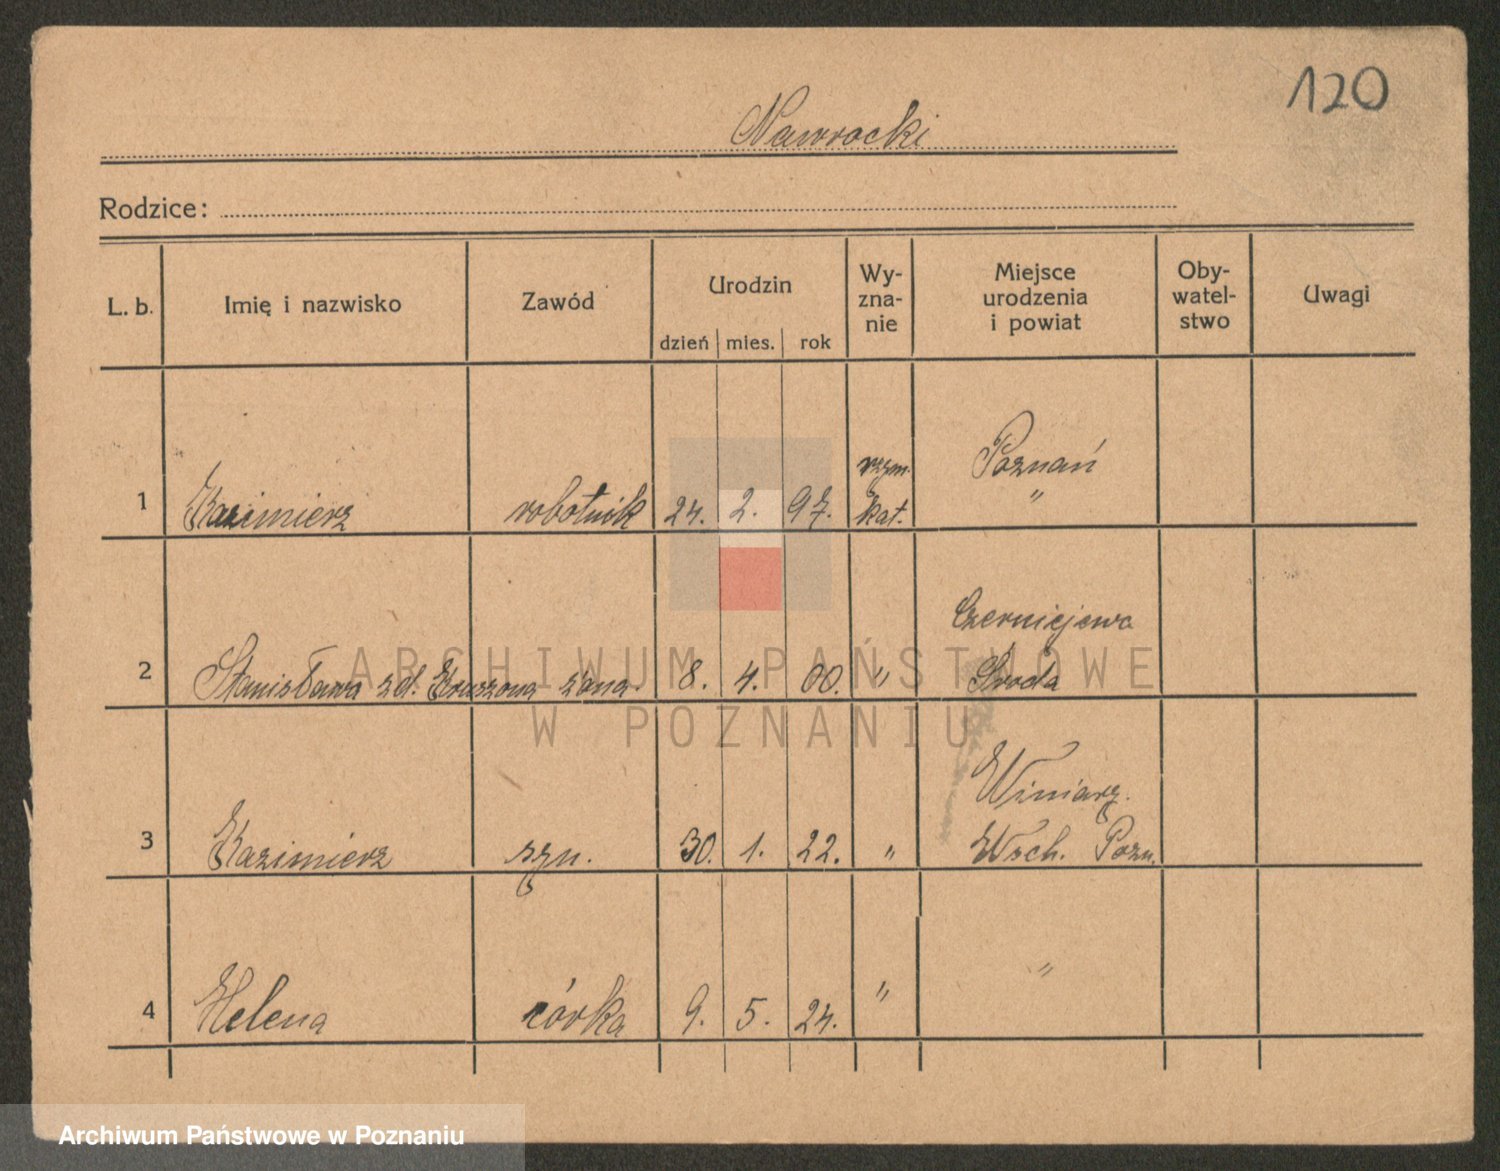 120
Nawrocki
Rodzice:
L. b. Imię i nazwisko Zawód Urodzin dzień mies. rok Wy-zna-nie Miejsce urodzenia i powiat Oby-watel-stwo Uwagi
1 Kazimierz robotnik 24. 2. 97. rzym. kat. Poznań "
2 Stanisława zd. Kruszona żona. 8. 4. 00. " Czerniejewo Środa
3 Kazimierz syn. 30. 1. 22. " Winiary. Wsch. Pozn.
4 Helena córka 9. 5. 24. " "
ARCHIWUM PAŃSTWOWE
W POZNANIU
Archiwum Państwowe w Poznaniu